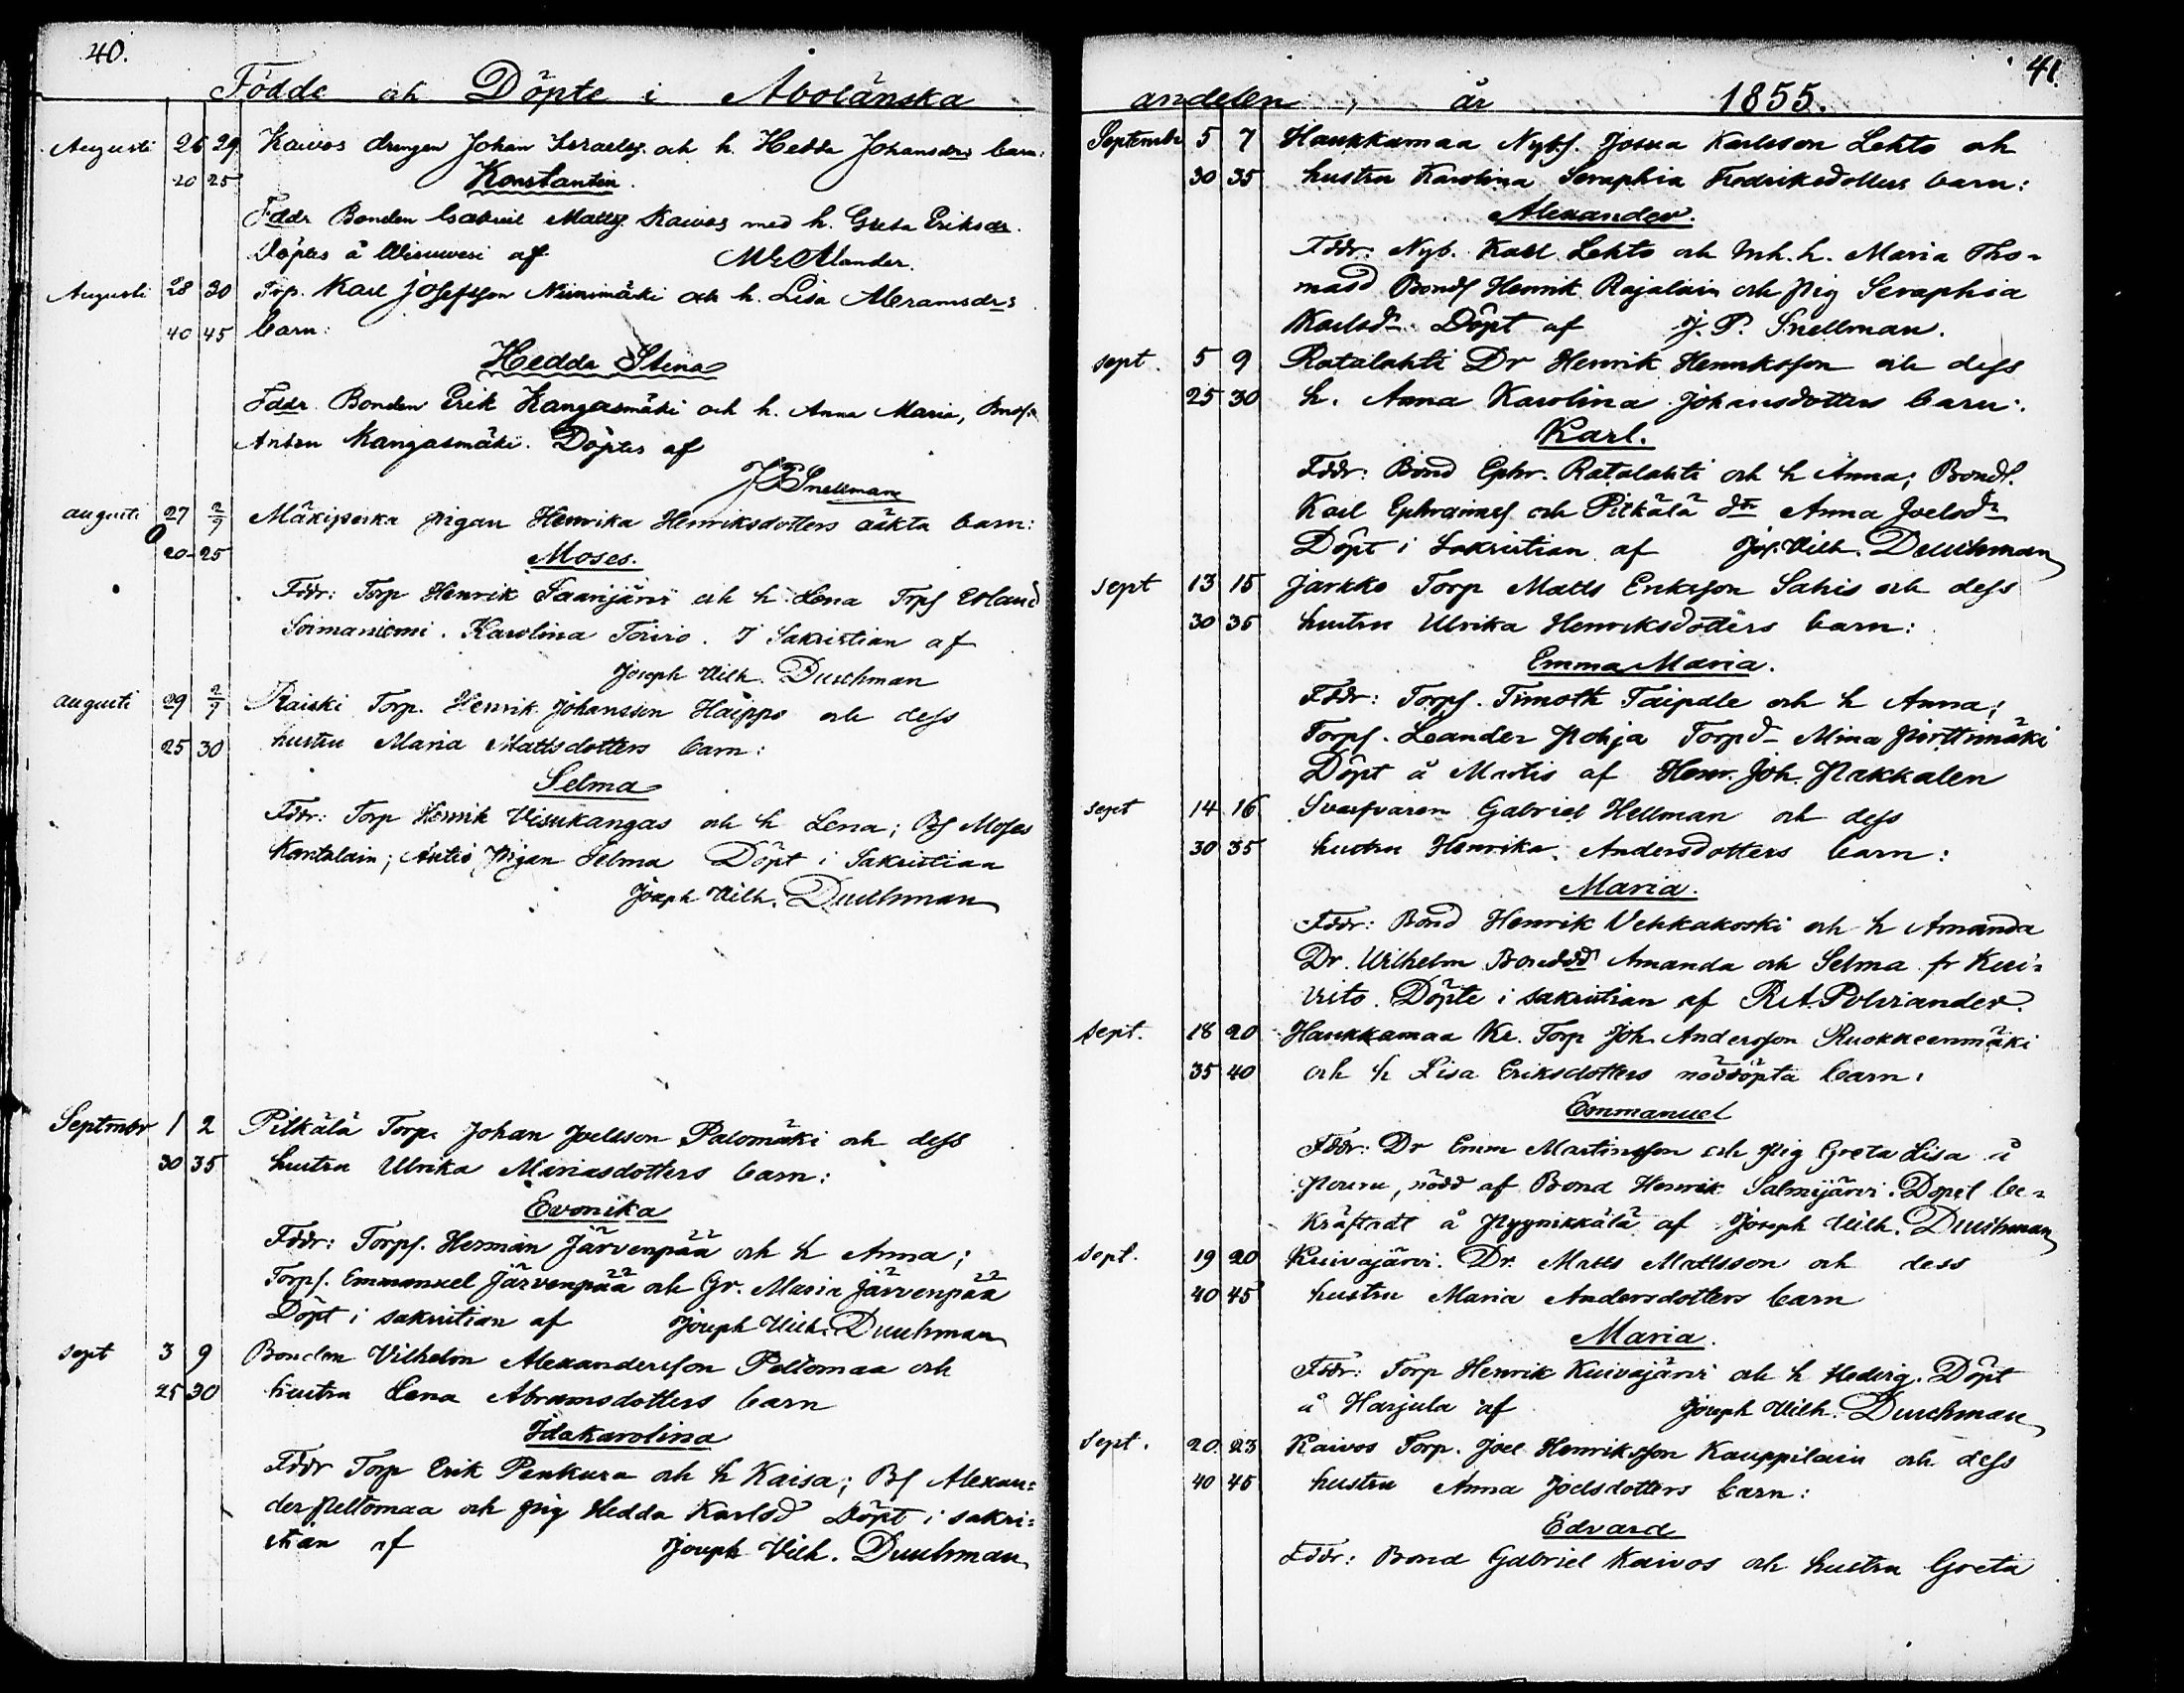 40.
Födde och Döpte i Åbolänska
Augusti 26 29 Kaivos drengen Johan Israels. och h. Hedda Johansdrs barn:
20 25 Konstantin.
Fddr Bonden Gabriel Matts. Kaivos med h. Greta Eriksdr.
Döptes å Wisuvesi af M. E. Alander.
Augusti 28 30 Trp. Karl Josefsson Niinimäki och h. Lisa Abramsdrs
40 45 barn:
Hedda Stina
Fddr. Bonden Erik Kangasmäki och h. Anna Maria,
Anton Kangasmäki. Döptes af
J P Snellman
augusti 27 2/9 Mäkipeska pigan Henrika Henriksdotters oäkta barn:
20 25 Moses.
Fddr: Torp Henrik Saarijärvi och h Lena Trps Erland
Soimaniemi. Karolina Toivio. I Sakristian af
Joseph Vilh. Durchman
augusti 29 2/9 Raiski Torp. Henrik Johansson Haippo och dess
25 30 hustru Maria Mattsdotters barn:
Selma
Fddr: Torp Henrik Visukangas och h Lena; Bs Moses
Kantalain; Antio pigan Selma Döpt i Sakristian
Joseph Vilh. Durchman
Septembr 1 2 Pitkälä Torp. Johan Joelsson Palomäki och dess
30 35 hustru Ulrika Mariasdotters barn:
Evonika
Fddr: Torps. Herman Järvenpää och h Anna;
Torps. Emmanuel Järvenpää och Gr. Maria Järvenpää
Döpt i sakristian af Joseph Vilh. Durchman
sept 3 9 Bonden Vilhelm Alexandersson Peltomaa och
25 30 hustru Lena Abramsdotters barn
Ida Karolina
Fddr Torp Erik Penkura och h Kaisa; Bs Alexan=
der Peltomaa och pig Hedda Karlsd Döpt i sakri=
stian af Joseph Vilh. Durchman
41.
andelen, år 1855.
Septembr 5 7 Haukkamaa Nybs. Josua Karlsson Lehto och
30 35 hustru Karolina Seraphia Fredriksdotters barn:
Alexander.
Fddr: Nyb. Karl Lehto och h. Maria Tho=
masd Bonds Henrik Rajalain och pig Seraphia
Karlsdr. Döpt af J. P. Snellman.
sept. 5 9 Ratalahti Dr Henrik Henriksson och dess
25 30 h. Anna Karolina Johansdotters barn:
Karl.
Fddr: Bond Ephr. Ratalahti och h Anna; Bonds.
Karl Ephraims och Pitkälä dr Anna Joelsdr
Döpt i Sakristian af Jos. Vilh. Durchman
sept 13 15 Jarkko Torp Matts Eriksson Sahis och dess
30 35 hustru Ulrika Henriksdotters barn:
Emma Maria.
Fddr: Torps. Timoth Taipale och h Anna;
Torps. Leander Pohja Torpd Mina Pirttimäki
Döpt å Martis af Henr. Joh. Pakkalen
sept 14 16 Svarfvaren Gabriel Hellman och dess
30 35 hustru Henrika Andersdotters barn:
Maria.
Fddr: Bond Henrik Vehkakoski och h Amanda
Dr. Wilhelm Amanda och Selma fr Keri=
vito. Döpte i sakristian af R. A. Polviander.
sept. 18 20 Haukkamaa Kr. Torp Joh. Andersson Ruokkeenmäki
35 40 och h Lisa Eriksdotters nöddöpta barn:
Emmanuel
Fddr: Dr Emm Martinsson och pig Greta Lisa å
Pouru, nödd af Bond Henrik Salmijärvi. Dopet be=
kräftadt å Pyynikkälä af Joseph Vilh. Durchman
sept. 19 20 Kuivajärvi. Dr. Matts Mattsson och dess
40 45 hustru Maria Andersdotters barn
Maria.
Fddr: Torp Henrik Kuivajärvi och h Hedvig. Döpt
å Harjula af Joseph Vilh. Durchman
sept. 20 23 Kaivos Torp. Joel Henriksson Kauppilain och dess
40 45 hustru Anna Joelsdotters barn:
Edvard
Fddr: Bond Gabriel Kaivos och hustru Greta